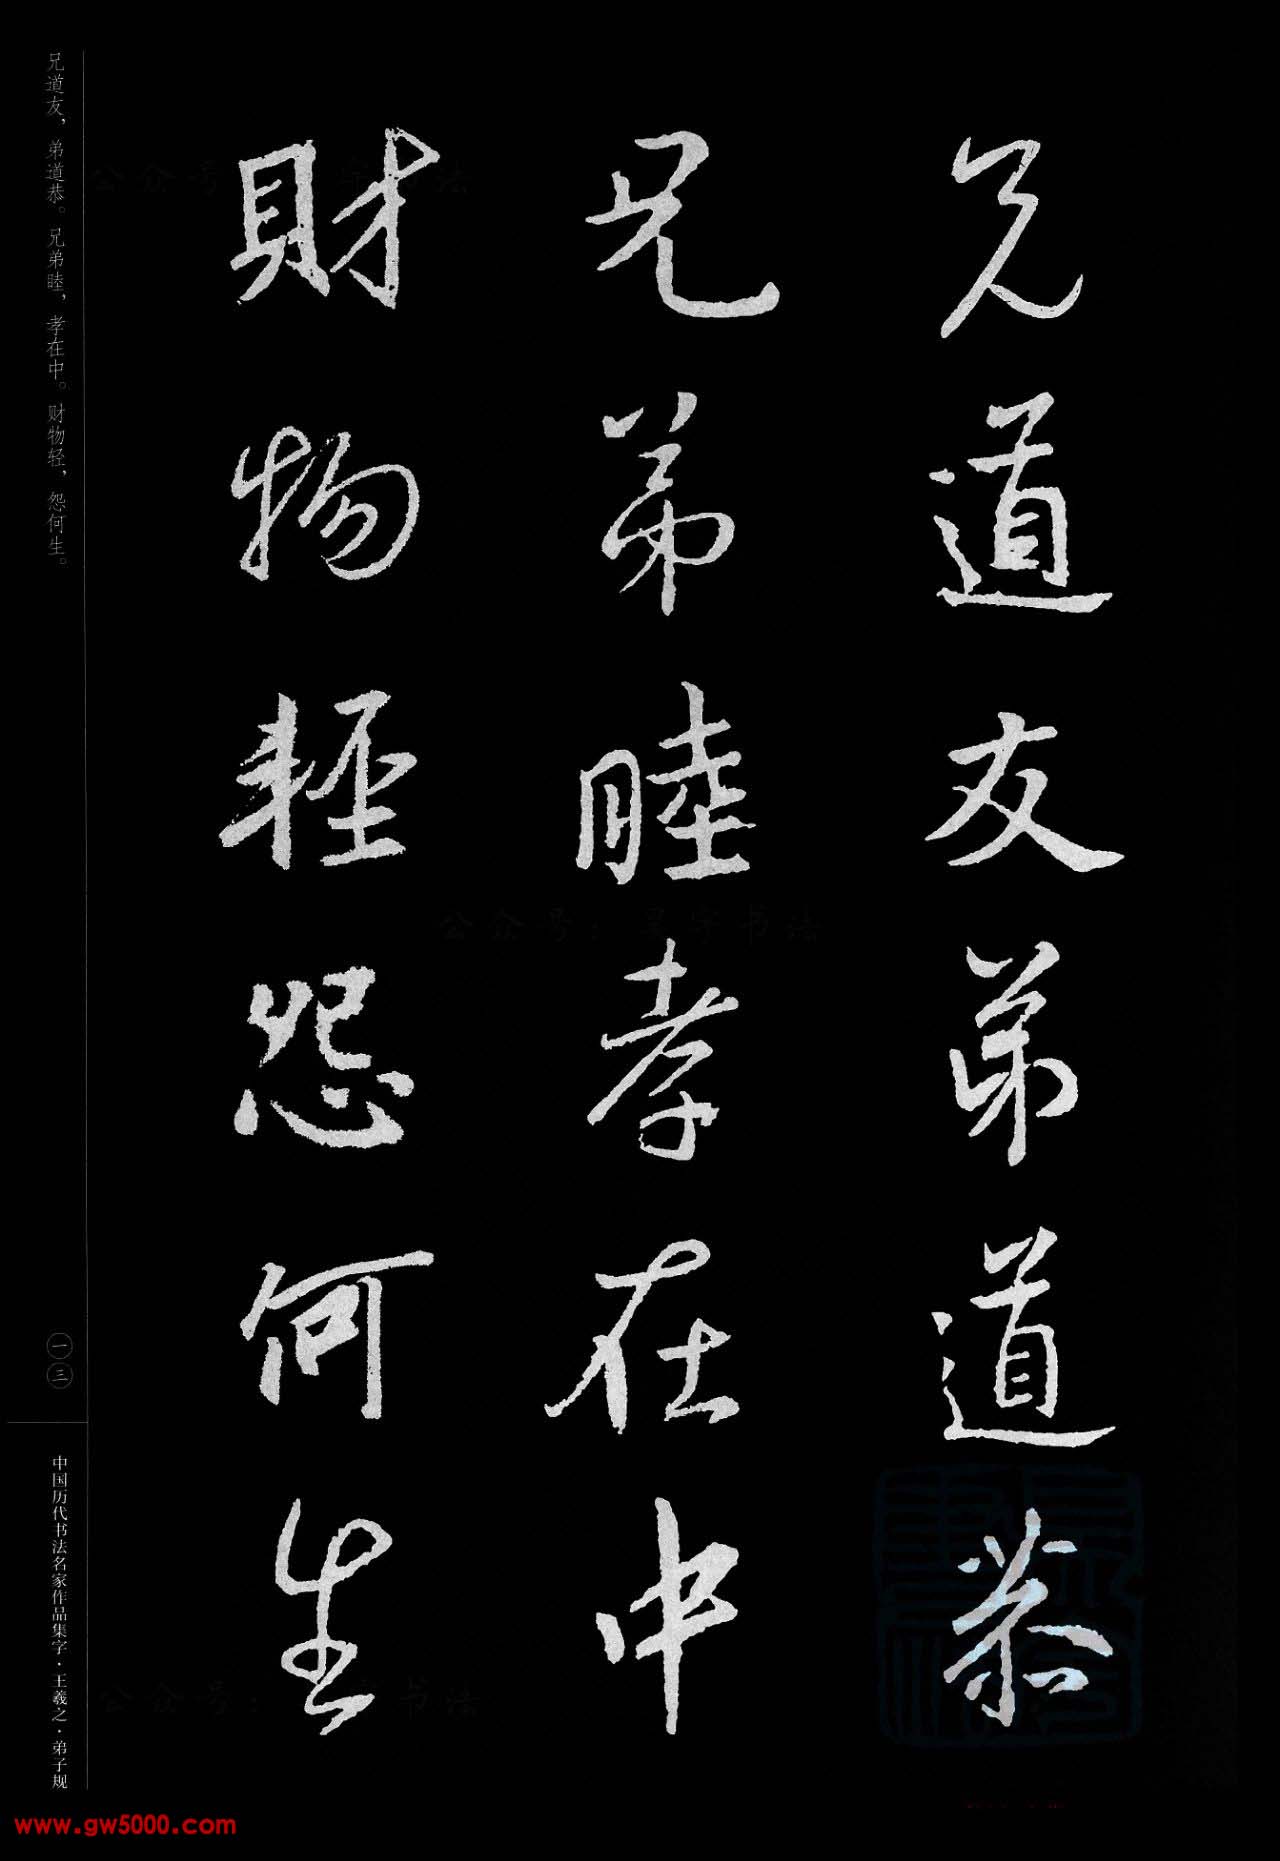 兄道友弟道恭
兄弟睦孝在中
財物輕怨何生
兄道友，弟道恭。兄弟睦，孝在中。财物轻，怨何生。
一三
中国历代书法名家作品集字·王羲之·弟子规
公众号： 字书法
公众号：墨字书法
公众号： 书法
www.gw5000.com